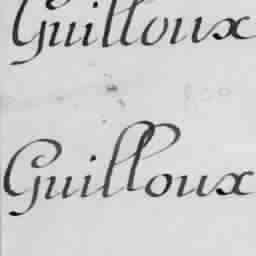 Guilloux
Guilloux